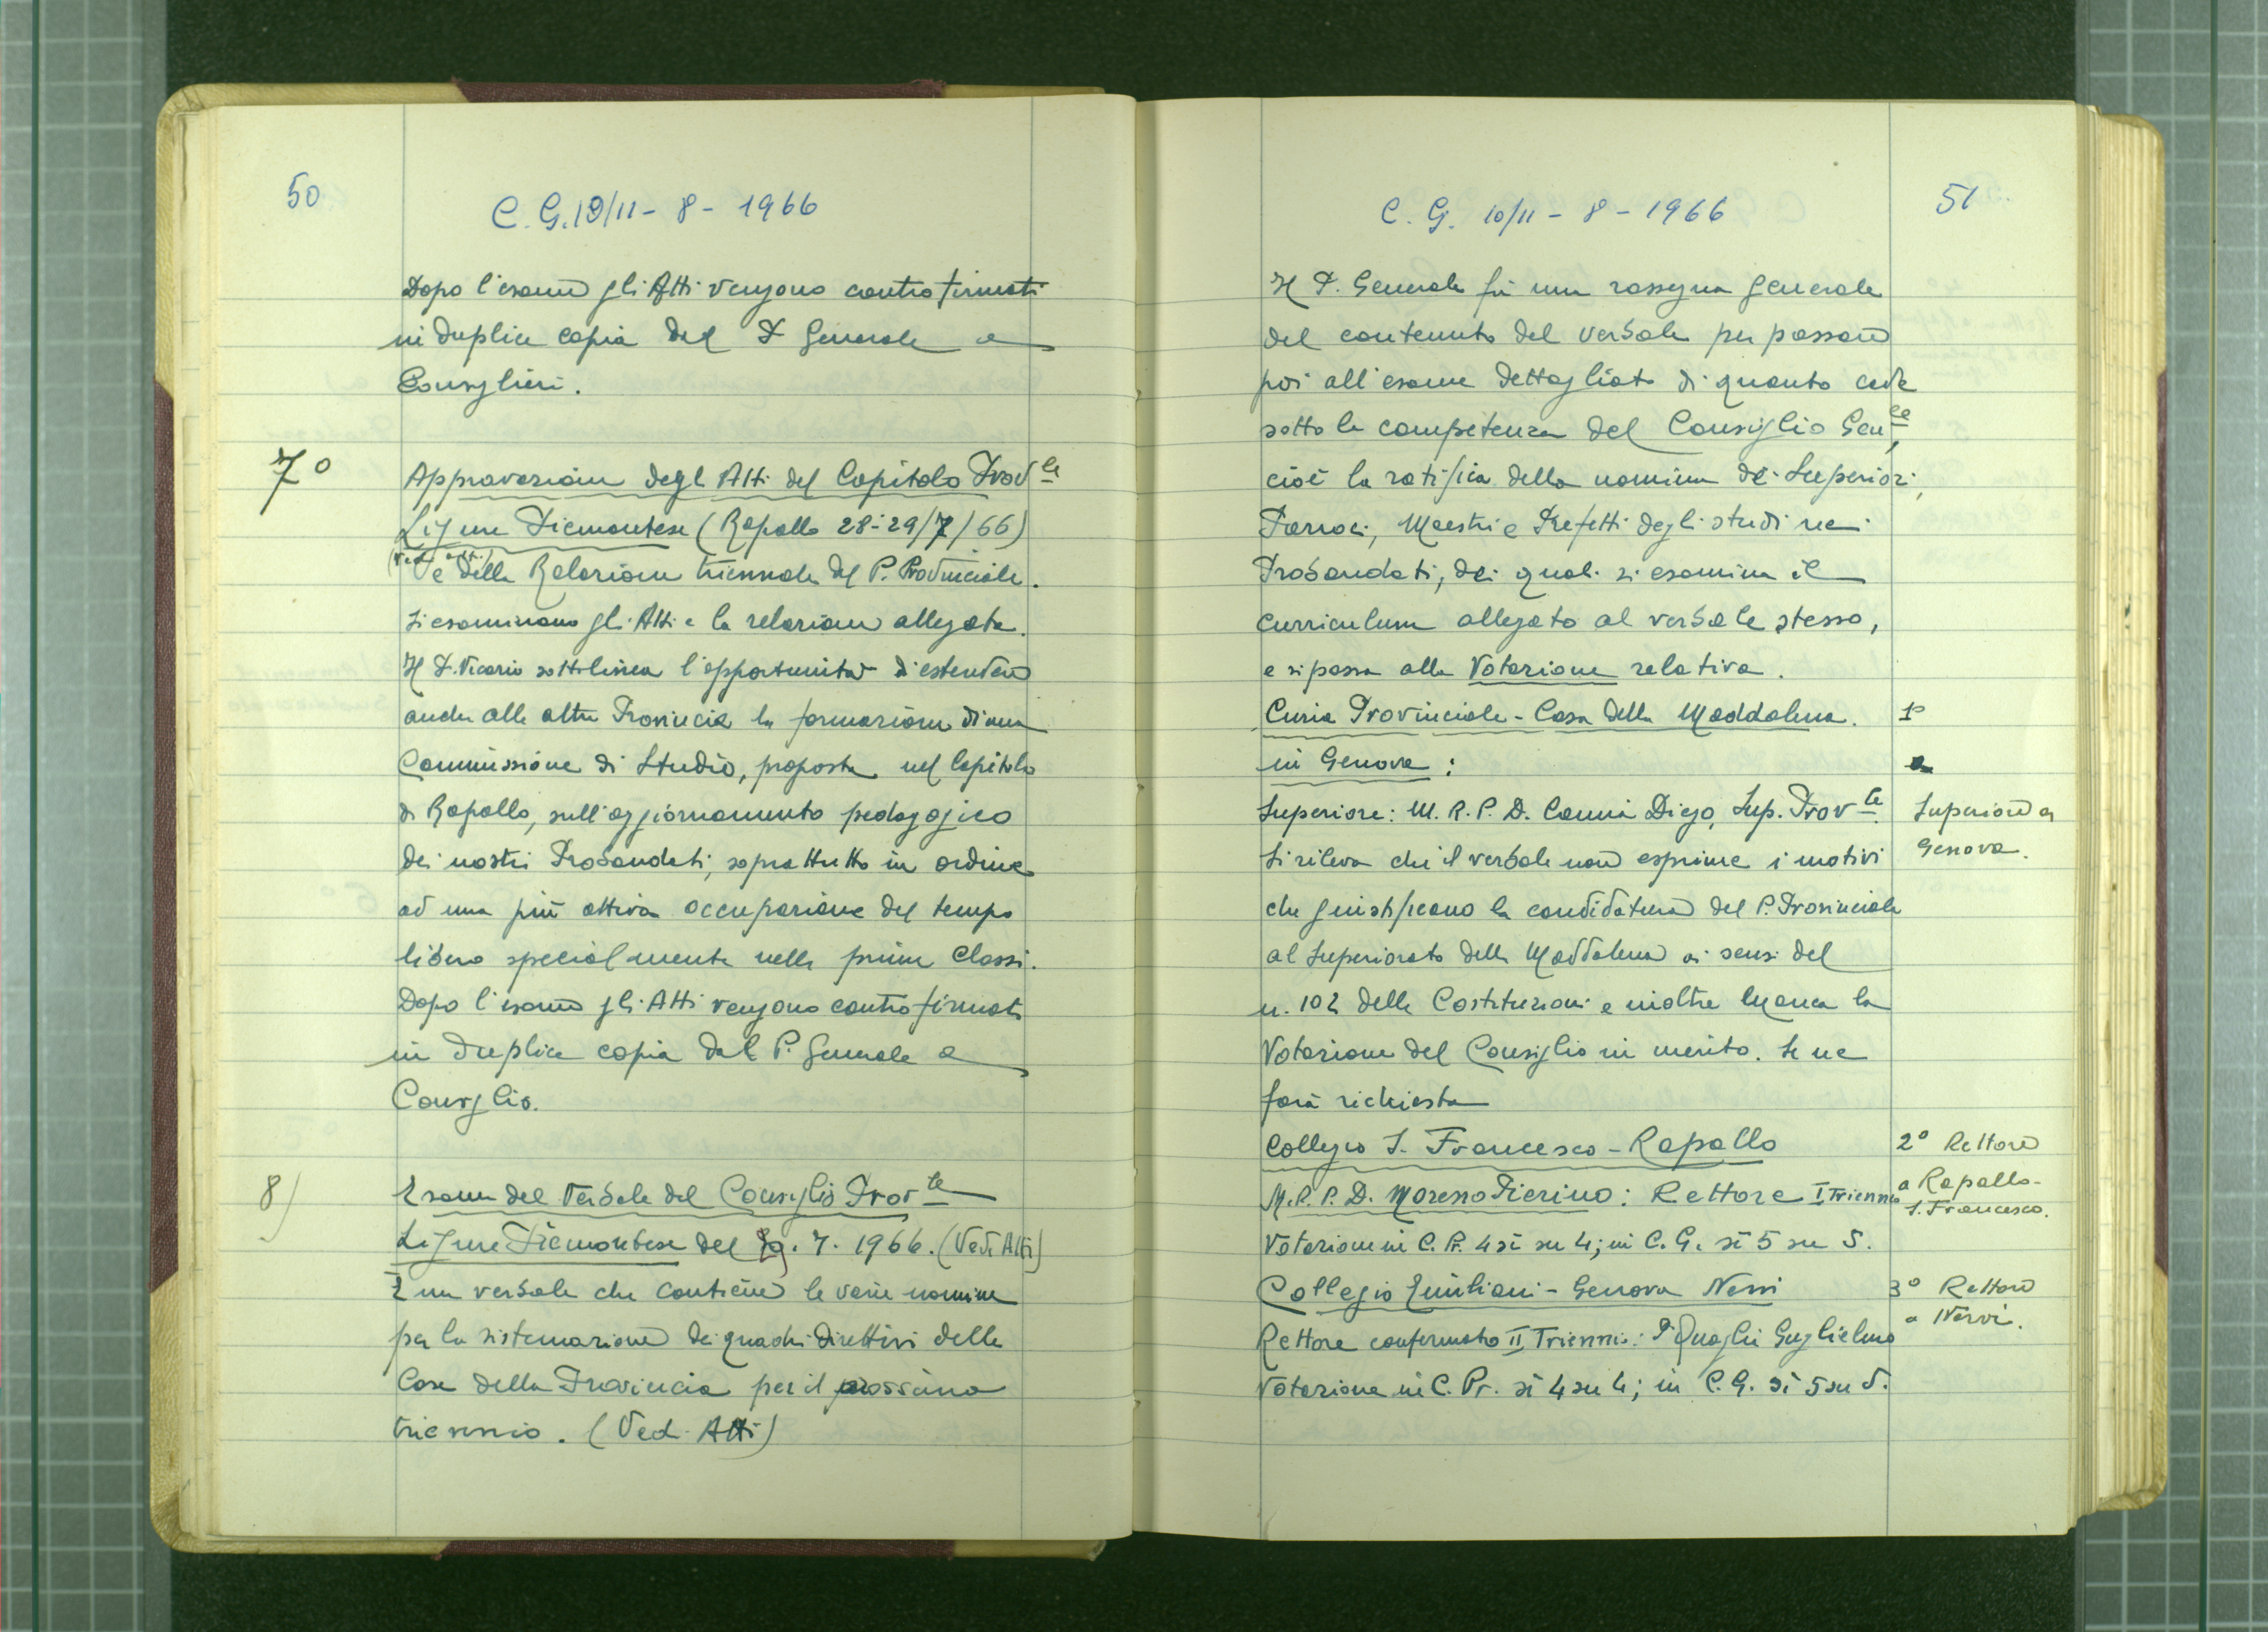 50
C. G. 10/11 - 8 - 1966
Dopo l'esame gli Atti vengono controfirmati
in duplice copia dal P. Generale e
Consiglieri.
7°
Approvazione degli Atti del Capitolo Prov.le
Ligure Piemontese (Rapallo 28-29/7/66)
(Ved. atti) e della Relazione triennale del P. Provinciale.
Si esaminano gli Atti e la relazione allegata.
Il P. Vicario sottolinea l'opportunità di estendere
anche alle altre Provincie la formazione di una
Commissione di Studio, proposta nel Capitolo
di Rapallo, sull'aggiornamento pedagogico
dei nostri Probandati, soprattutto in ordine
ad una più attiva occupazione del tempo
libero specialmente nelle prime classi.
Dopo l'esame gli Atti vengono controfirmati
in duplice copia dal P. Generale e
Consiglio.
8)
Esame del Verbale del Consiglio Prov.le
Ligure Piemontese del 29. 7. 1966. (Vedi Atti)
È un verbale che contiene le varie nomine
per la sistemazione dei quadri direttivi delle
Case della Provincia per il prossimo
triennio. (Ved. Atti)
51
C. G. 10/11 - 8 - 1966
Il P. Generale fa una rassegna generale
del contenuto del verbale per passare
poi all'esame dettagliato di quanto cade
sotto la competenza del Consiglio Gen.le,
cioè la ratifica della nomina dei Superiori,
Parroci, Maestri e Prefetti degli studi nei
Probandati, dei quali si esamina il
curriculum allegato al verbale stesso,
e si passa alla Votazione relativa.
Curia Provinciale - Casa della Maddalena. 1°
in Genova:
Superiore: M. R. P. D. Camia Diego, Sup. Prov.le Superiore a
Si rileva che il verbale non esprime i motivi Genova.
che giustificano la candidatura del P. Provinciale
al Superiorato della Maddalena ai sensi del
n. 102 delle Costituzioni e inoltre manca la
Votazione del Consiglio in merito. Se ne
farà richiesta
Collegio S. Francesco - Rapallo 2° Rettore
M. R. P. D. Moreno Pierino: Rettore I Triennio a Rapallo -
S. Francesco.
Votazione in C. Pr. 4 sì su 4; in C. G. sì 5 su 5.
Collegio Emiliani - Genova Nervi 3° Rettore
a Nervi.
Rettore confermato II Triennio: P. Quaglia Guglielmo
Votazione in C. Pr. sì 4 su 4; in C. G. sì 5 su 5.